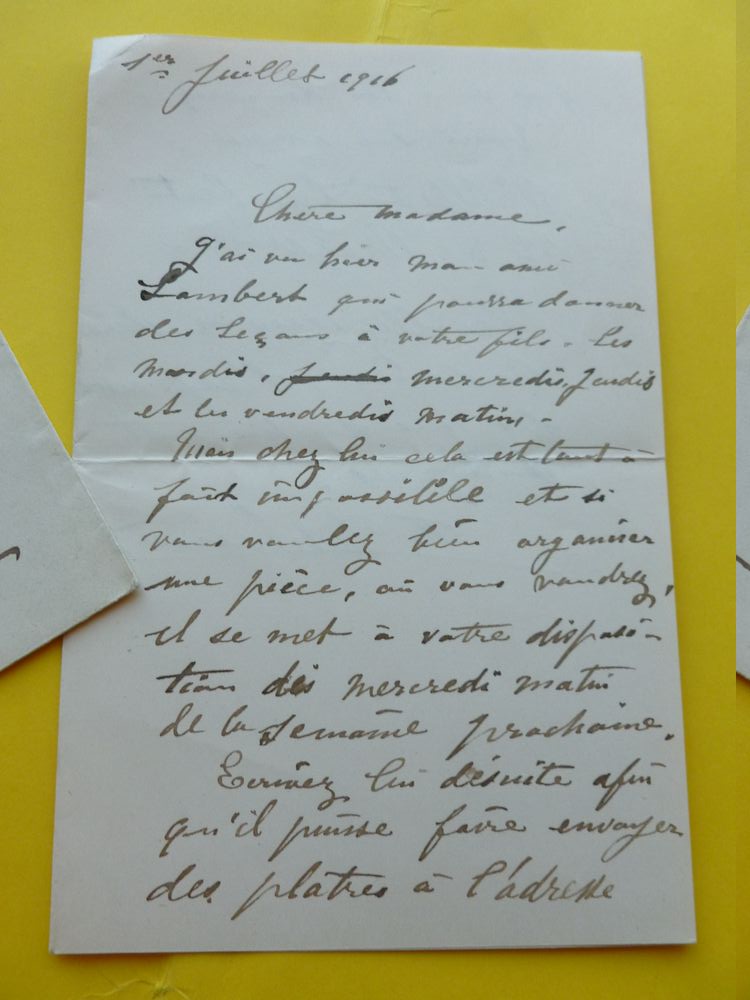 1er Juillet 1916
Chere madame,
J'ai vu hier mon ami
Lambert qui pourra donner
des leçons à votre fils. les
mardis, jeudis mercredis, Jeudis
et les vendredis matins -
Mais chez lui cela est tout à
fait impossible et si
vous voulez bien organiser
une pièce, où vous voudrez,
il se met à votre disposi-
tion dès mercredi matin
de la semaine prochaine.
Ecrivez lui désuite afin
qu'il puisse faire envoyer
des platres à l'adresse